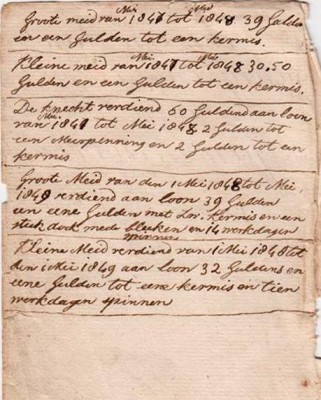 Mei Mei
Groote meid van 1847 tot 1848 39 Gulden
en een Gulden tot een kermis.
Mei Mei
Kleine meid van 1847 tot 1848 30,50
Gulden en een Gulden tot een kermis.
De knecht verdiend 60 Guldend aan loon
van Mei 1847 tot Mei 1848 2 Gulden tot
een Meerpenning en 2 Gulden tot een
kermis
Groote Meid van den 1 Mei 1848 tot Mei,
1849 verdiend aan loon 39 Gulden
en eene Gulden met kermis en een
stuk doek mede bleeken en 14 werkdagen
spinnen
Kleine Meid verdiend van 1 Mei 1848 tot
den 1 Mei 1849 aan loon 32 Guldens en
eene Gulden tot eene kermis en tien
werkdagen spinnen